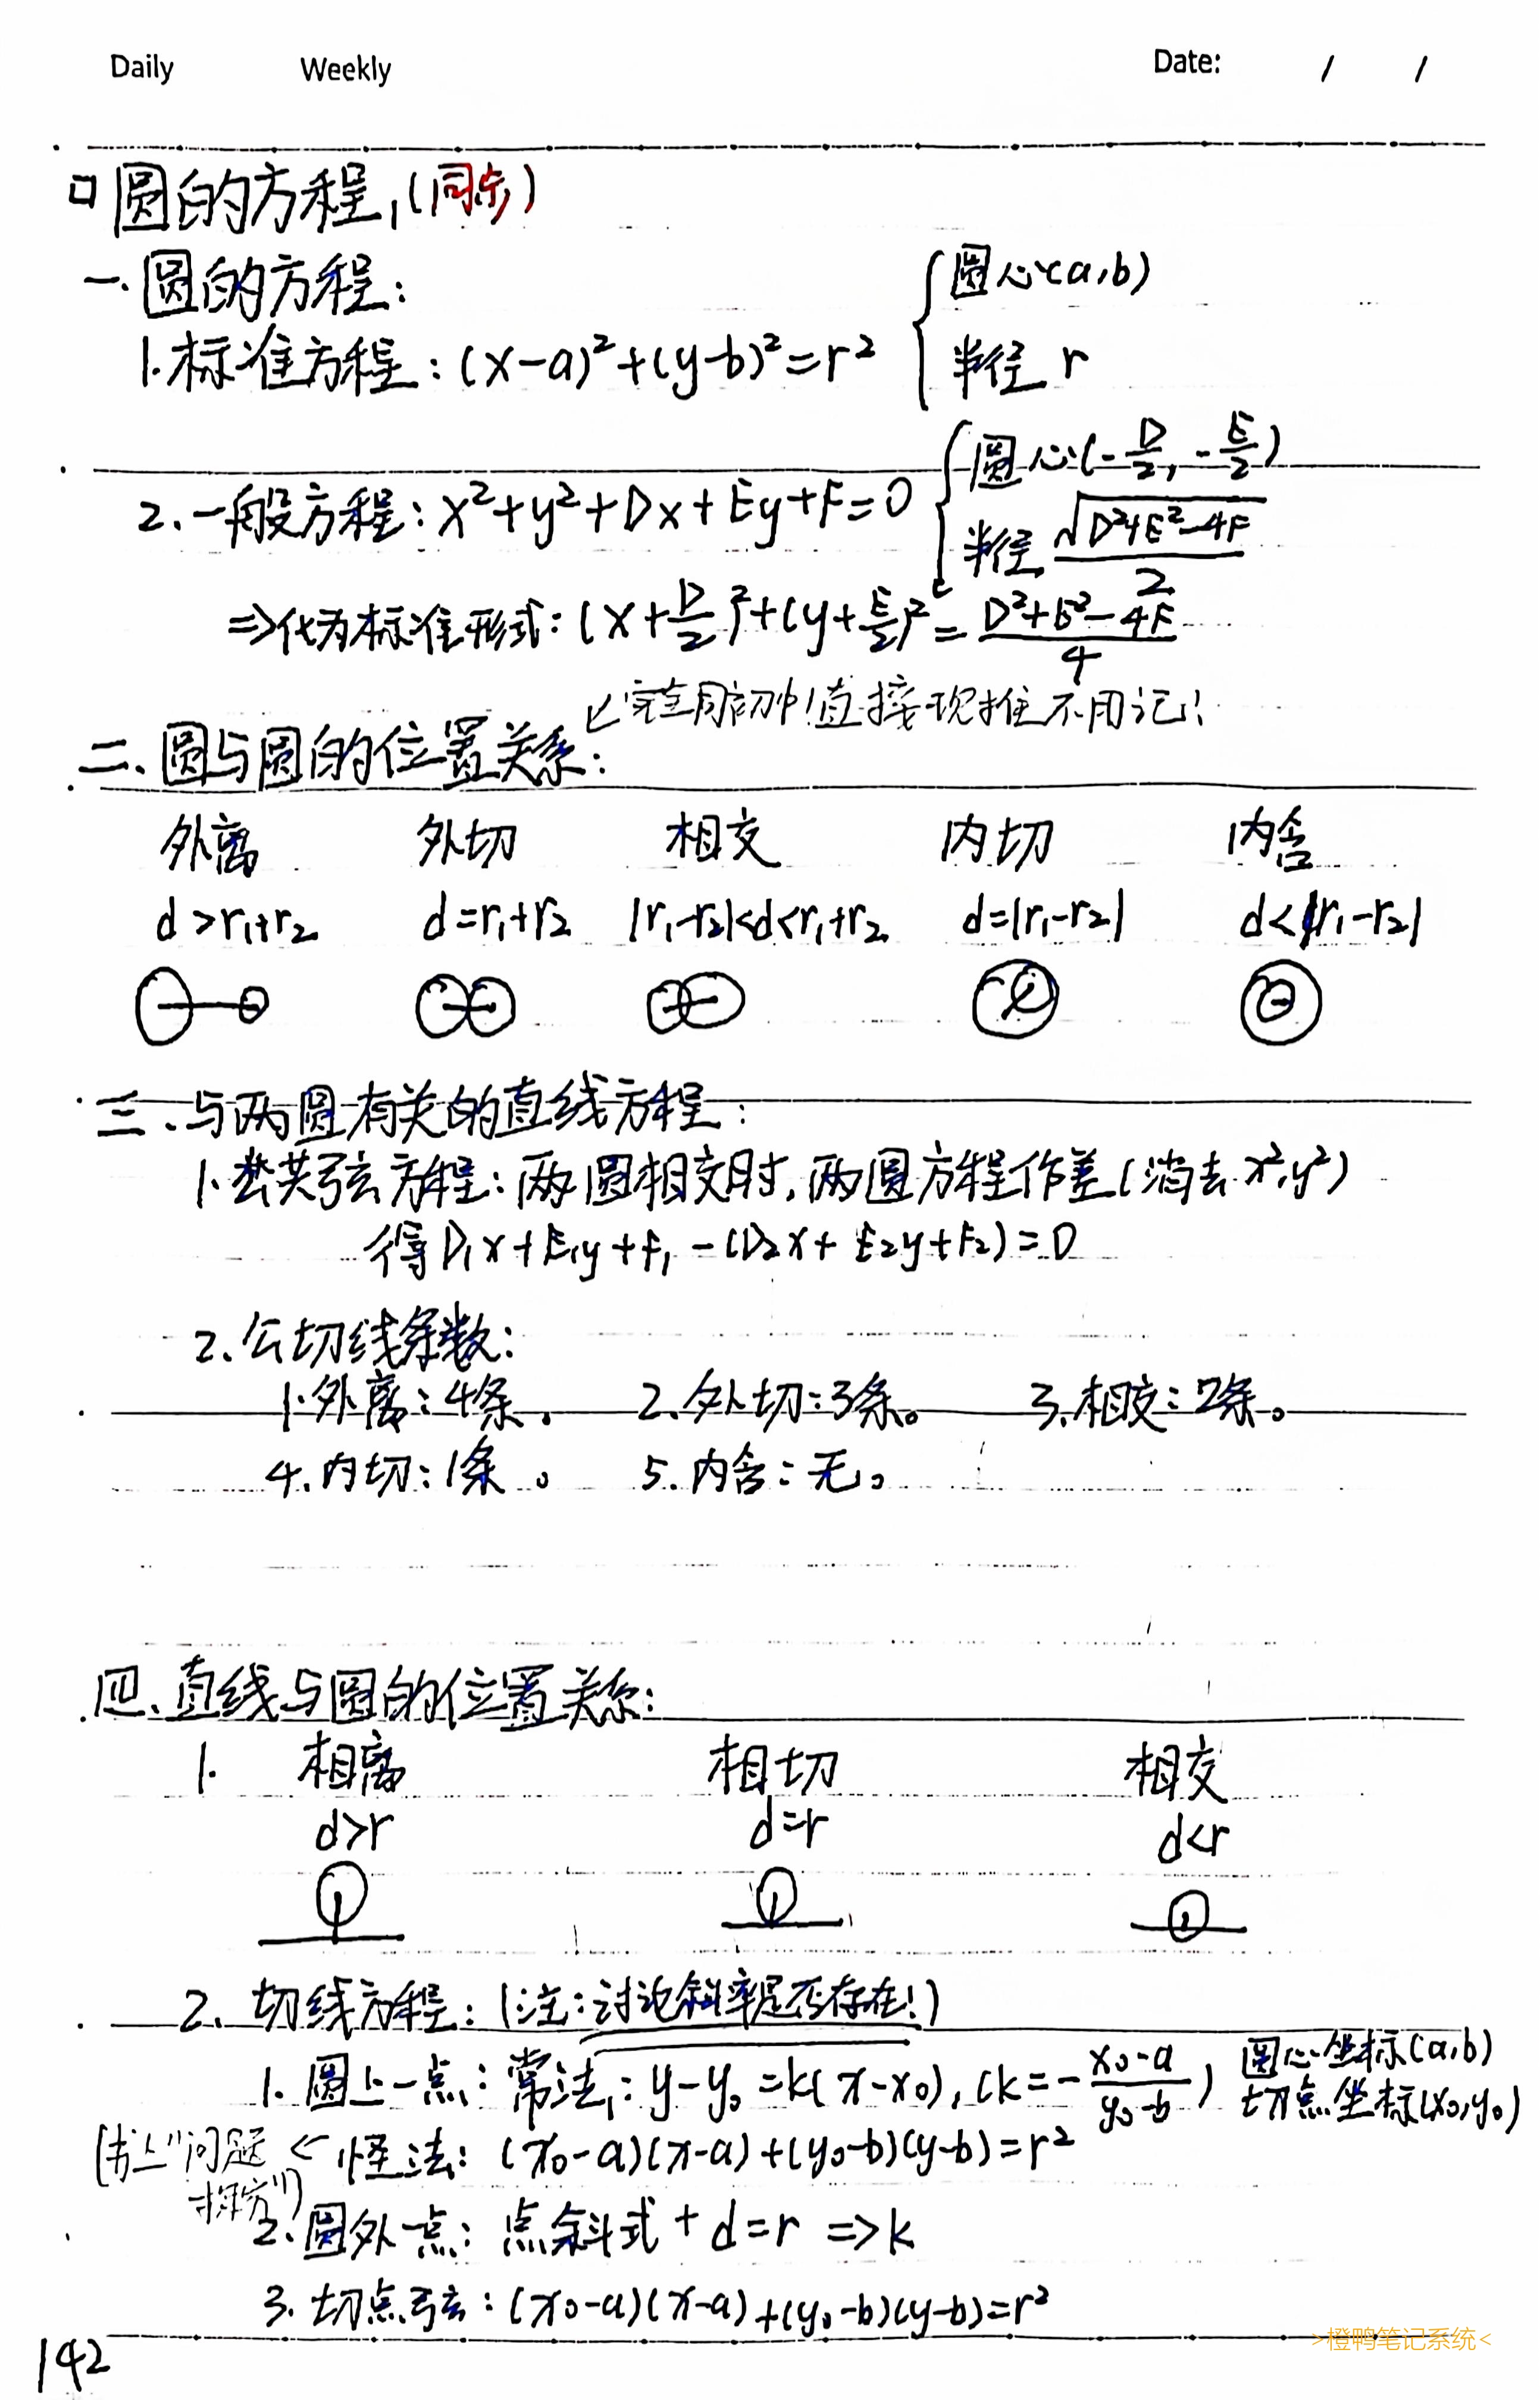 Daily Weekly Date: / /
口圆的方程,(同步)
一.圆的方程:
1.标准方程:(x-a)²+(y-b)²=r² { 圆心(a,b)
半径 r
2.一般方程:x²+y²+Dx+Ey+F=0 { 圆心(-D/2,-E/2)
半径 √(D²+E²-4F)/2
=>化为标准形式:(x+D/2)²+(y+E/2)²=(D²+E²-4F)/4
二.圆与圆的位置关系: ↙完全同初中!直接现推不用记!
外离 外切 相交 内切 内含
d>r₁+r₂ d=r₁+r₂ |r₁-r₂|<d<r₁+r₂ d=|r₁-r₂| d<|r₁-r₂|
三.与两圆有关的直线方程:
1.公共弦方程:两圆相交时,两圆方程作差(消去x²,y²)
得D₁x+E₁y+F₁-(D₂x+E₂y+F₂)=0
2.公切线条数:
1.外离:4条。 2.外切:3条。 3.相交:2条。
4.内切:1条。 5.内含:无。
四.直线与圆的位置关系:
1. 相离 相切 相交
d>r d=r d<r
2.切线方程:(注:讨论斜率是否存在!)
1.圆上一点:常法:y-y₀=k(x-x₀),(k=-(x₀-a)/(y₀-b)) 圆心坐标(a,b)
切点坐标(x₀,y₀)
(书上"问题探究") ← 怪法:(x₀-a)(x-a)+(y₀-b)(y-b)=r²
2.圆外一点:点斜式+d=r =>k
3.切点弦:(x₀-a)(x-a)+(y₀-b)(y-b)=r²
142
>橙鸭笔记系统<